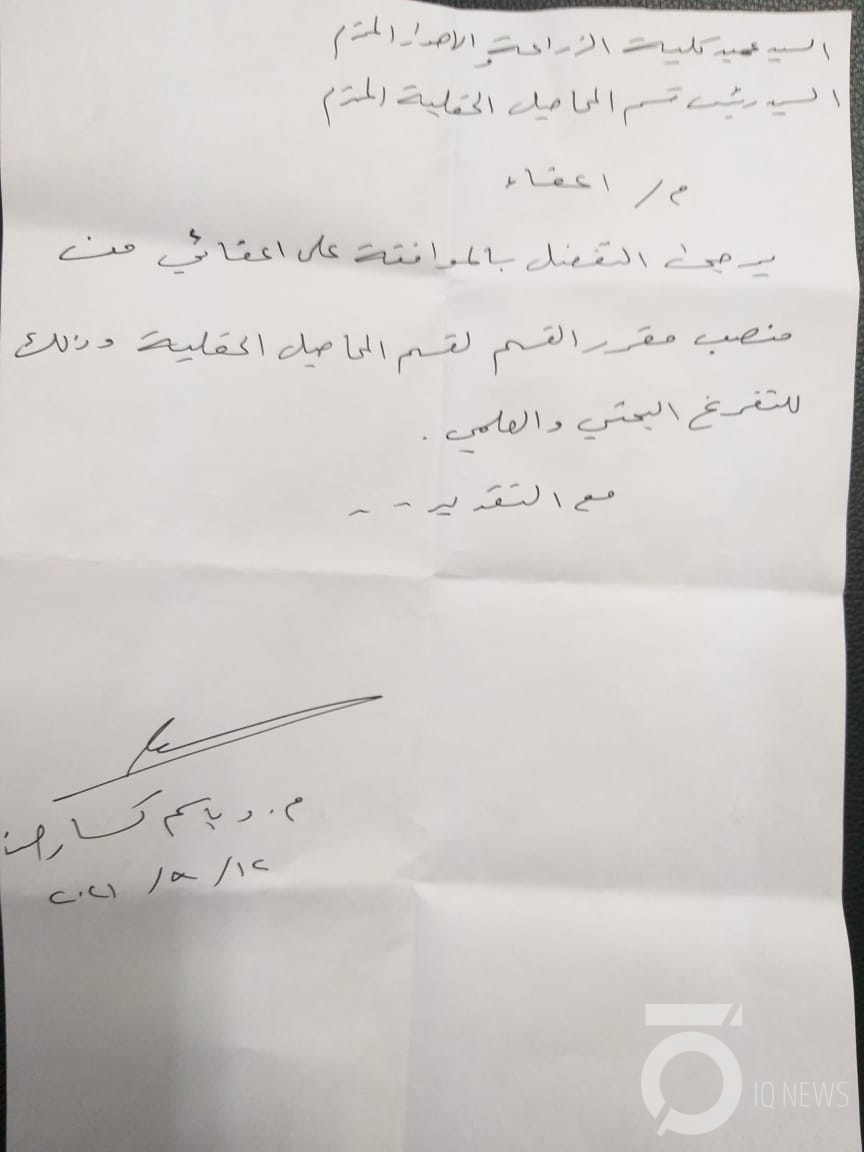 السيد عميد كلية الزراعة والاهوار المحترم
السيد رئيس قسم المحاصيل الحقلية المحترم
م/ اعفاء
يرجى التفضل بالموافقة على اعفائي من
منصب مقرر القسم لقسم المحاصيل الحقلية وذلك
للتفرغ البحثي والعلمي .
مع التقدير - -
م. د باسم كسار
٢٠٢١ /٥ /١٢
IQ NEWS